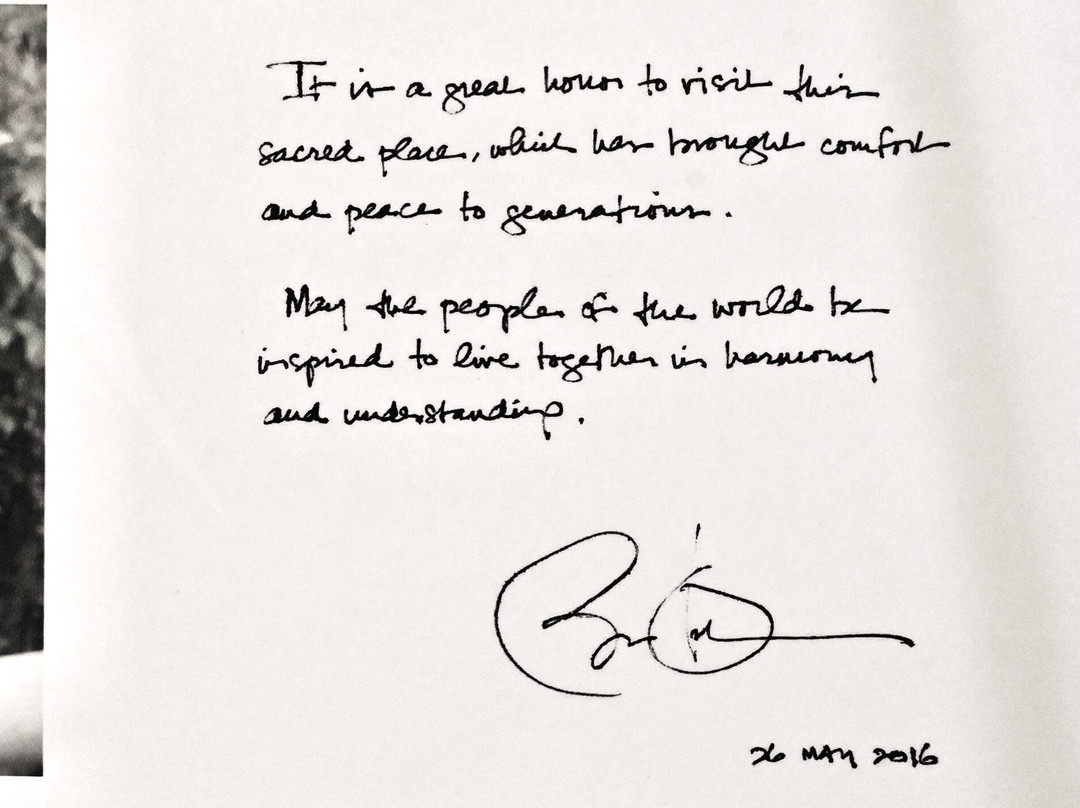 It is a great honor to visit this
sacred place, which has brought comfort
and peace to generations.
May the people of the world be
inspired to live together in harmony
and understanding.
26 MAY 2016